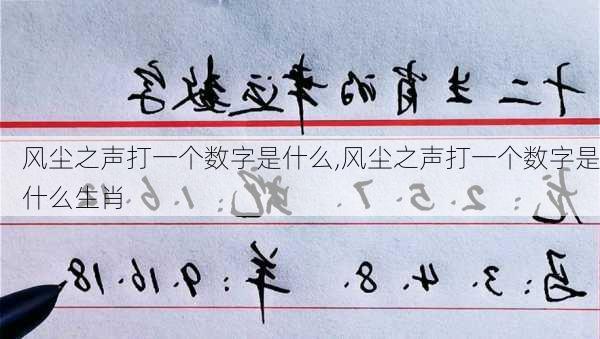 十二生肖的幸运数字
风尘之声打一个数字是什么,风尘之声打一个数字是
什么生肖
龙:2.5.7. 蛇:1.6.
马:3.4.8. 羊:9.16.18